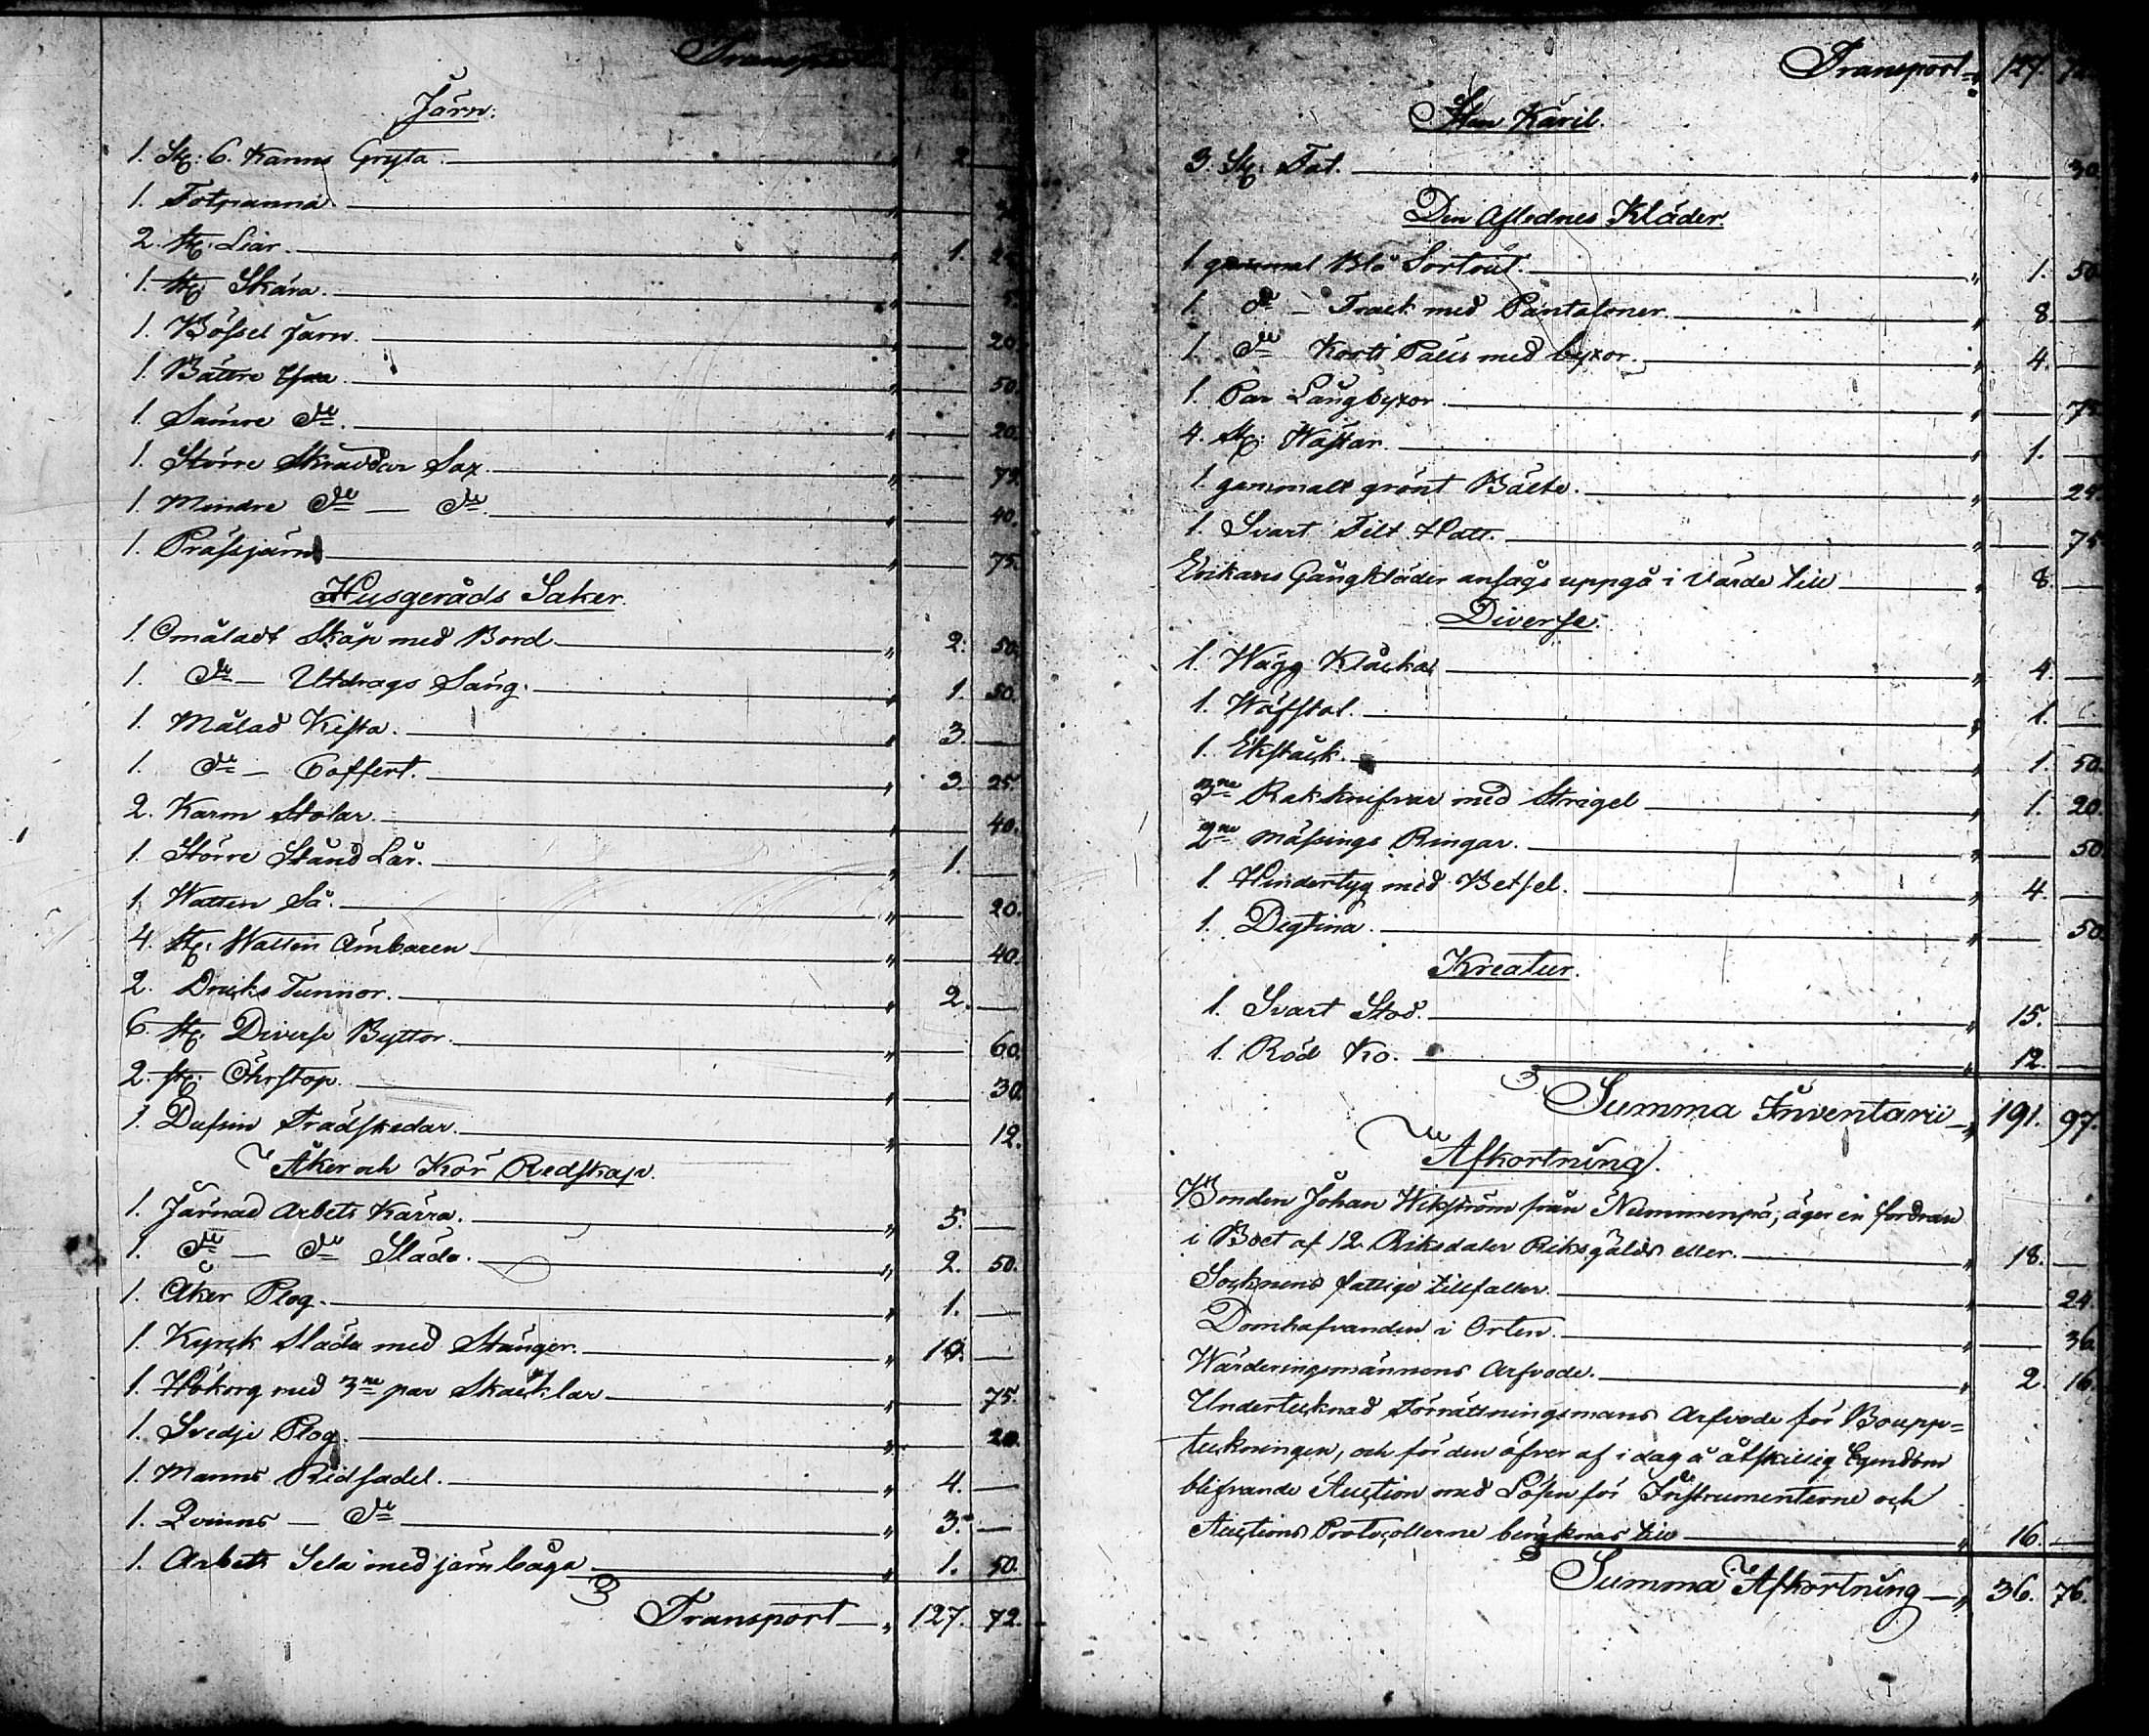 Transport
Järn.
1. St: 6. Kanns Gryta. " 2. —
1. Fotpanna. " —
2. st: Liar. " 1. 25.
1. st: Skära. " — 5.
1. Bössel Järn. " — 20.
1. Bättre Yxa. " — 50.
1. Sämre d:o. " — 20.
1. Större Skräddar Sax. " — 75.
1. Mindre d:o — d:o. " — 40.
1. Präfsjärn " — 75.
Husgeråds Saker.
1. Omåladt Skåp med Bord " 2. 50.
1. d:o — Utdrags Säng. " 1. 50.
1. Målad Kista. " 3. —
1. d:o — Coffert. " 3. 25.
2. Karm Stolar. " — 40.
1. Större Stånd Lår. " 1. —
1. Watten Så. " — 20.
4. st: Watten Ämbaren " — 40.
2. Dricks Tunnor. " 2. —
6. st: Diverse Byttor. " — 60.
2. st: Öhrstop. " — 30.
1. Dussin Trädskedar. " — 12.
Åker och Kör Redskap.
1. Järnad Arbets Kärra. " 5. —
1. d:o — d:o Släda. " 2. 50.
1. Åker Plog. " 1. —
1. Kyrck Släda med Stänger. " 10. —
1. Hökorg med 3ne par Skacklar " — 75.
1. Svedje Plog. " — 20.
1. Manns Ridsadel. " 4. —
1. Qvinns — d:o " 3. —
1. Arbets Sela med järn båga " 1. 50.
Transport — " 127. 72.
Transport " 127. 72.
Sten Käril.
3. St: Fat. " — 30.
Den Aflednes Kläder.
1. gammal Blå Sortout. " 1. 50
1. d:o — Frack med Pantaloner. " 8. —
1. d:o Korti Pails med byxor. " 4. —
1. Par Långbyxor " — 75.
4. st: Wästar. " 1. —
1. gammalt grönt Bälte. " — 25.
1. Svart Filt Hatt. " — 75
Enkans Gångkläder ansågs uppgå i Värde till " 8. —
Diverse.
1. Wägg Klåcka " 4. —
1. Wäfstol. " 1. —
1. Ekstäck. " 1. 50.
3ne Rakknifvar med Strigel " 1. 20.
2ne Mässings Ringar. " — 50
1. Hindertyg med Betsel. " 4. —
1. Degtina. " — 50.
Kreatur.
1. Svart Stod. " 15. —
1. Röd Ko. " 12. —
Summa Inventarii — " 191. 97.
Afkortning.
Bonden Johan Wikström från Nummenpä, äger en fordran
i Boet af 12. Riksdaler Riksgälds eller. " 18. —
Socknens fattige tillfaller. " — 24.
Domhafvanden i Orten. " — 36.
Wärderingsmännens Arfvode. " 2. 16.
Undertecknad Förrättningsmans Arfvode för Boupp=
teckningen, och för den öfver af i dag å åtskillig Egendom
blifvande Auction med Lösen för Instrumenterne och
Auctions Protocollerne beräknas till " 16. —
Summa Afkortning — " 36. 76.